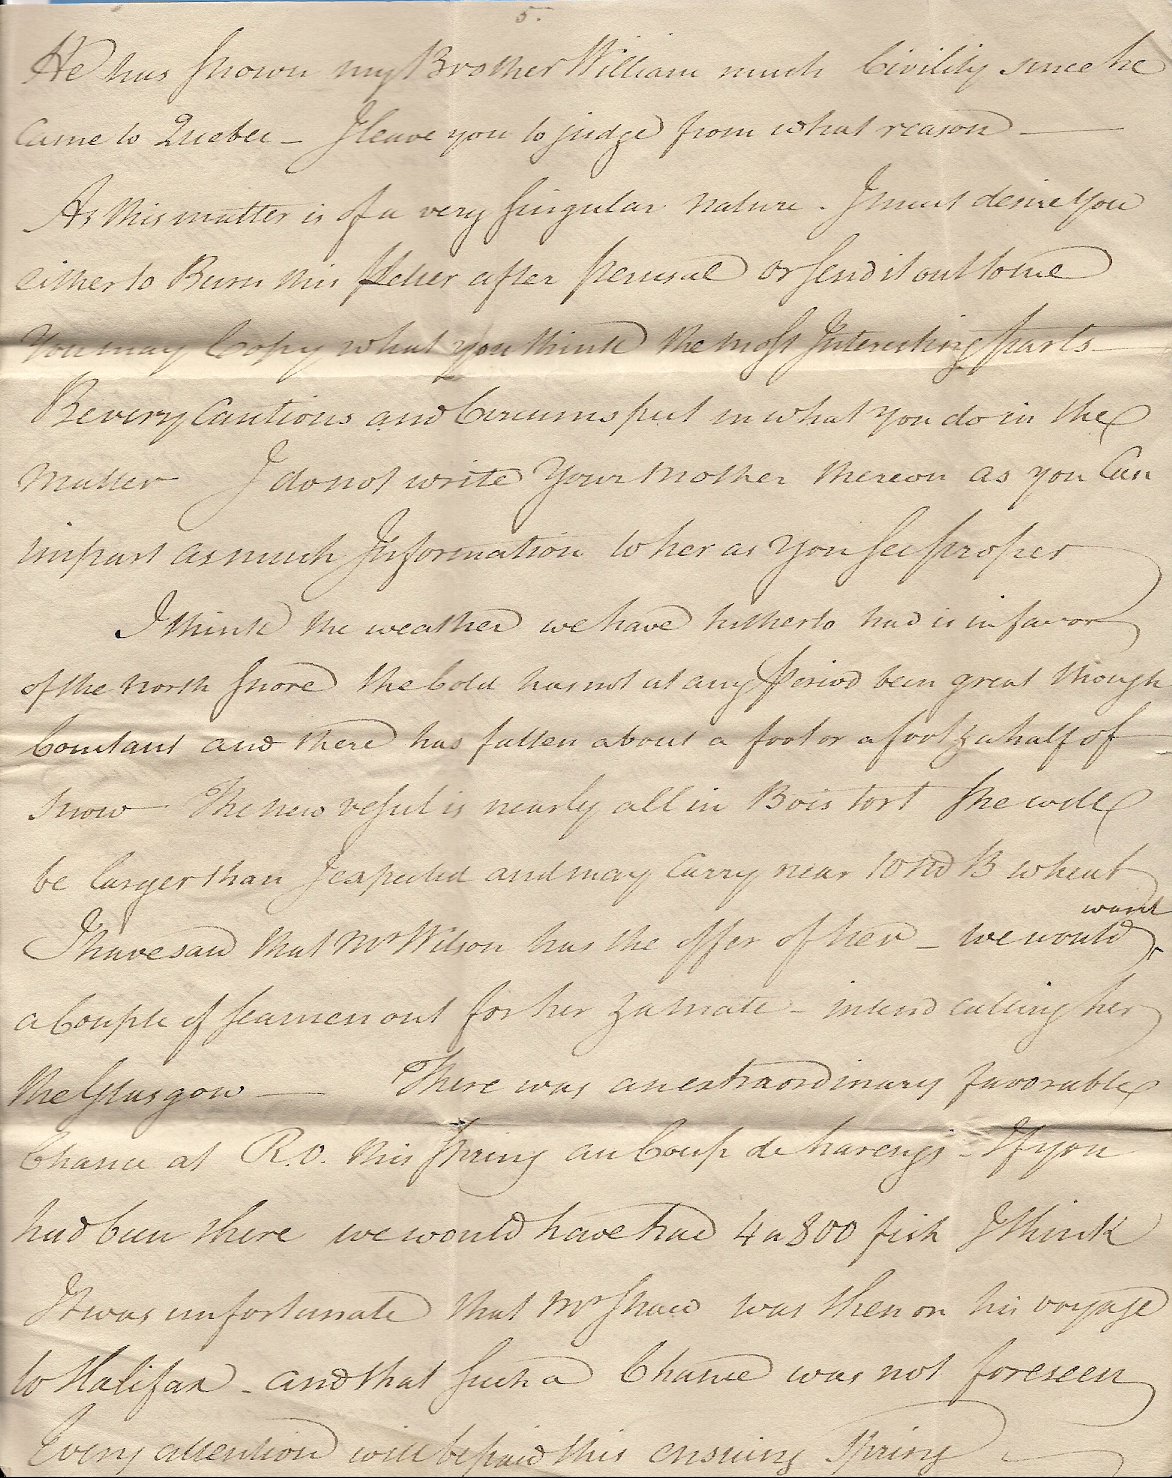 5.
He has shown my Brother William much Civility since he
Came to Quebec – I leave you to judge from what reason —
As this matter is of a very singular nature. I must desire you
either to Burn this letter after perusal or send it out to me
You may Copy what you think the most Interesting parts —
Be very Cautious and Circumspect in what you do in the
Matter I do not write Your Mother thereon as you Can
impart as much Information to her as You see proper
I think the weather we have hitherto had is in favor
of the North Shore the Cold has not at any Period been great though
Constant and there has fallen about a foot or a foot & a half of
Snow – The new vessel is nearly all in Bois tort She will
be larger than I expected and may Carry near B wheat
I have said that Mr Wilson has the offer of her – we would want
a Couple of seamen out for her & a Mate – intend calling her
the Glasgow — There was an extraordinary favorable
Chance at R.O. this Spring au Coup de harengs – If you
had been there we would have had 4 a 800 fish I think
It was unfortunate that Mr Shaw was then on his voyage
to Halifax – and that such a Chance was not foreseen
Every attention will be paid this ensuing Spring